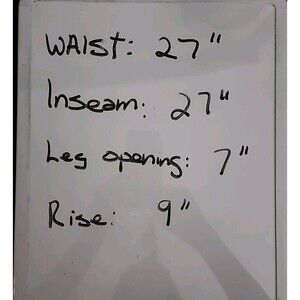 WAIST: 27"
Inseam: 27"
Leg opening: 7"
Rise: 9"